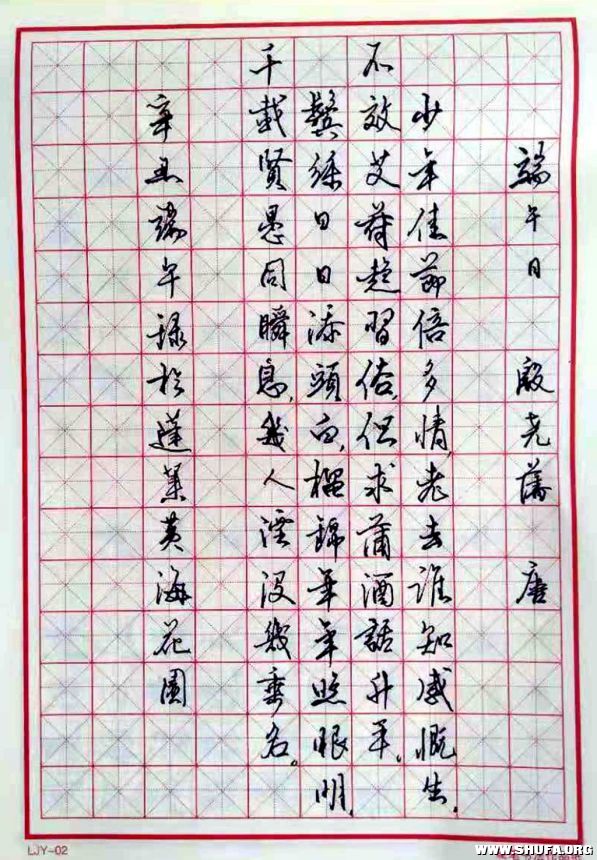 端午日 殷尧藩 唐
少年佳節倍多情,老去谁知感慨生.
不效艾符趋習俗,但求蒲酒話升平。
鬓絲日日添頭白,榴錦年年照眼明,
千載賢愚同瞬息,幾人湮没幾垂名。
辛丑端午録於蓬莱黄海花園
LJY-02
WWW.SHUFA.ORG